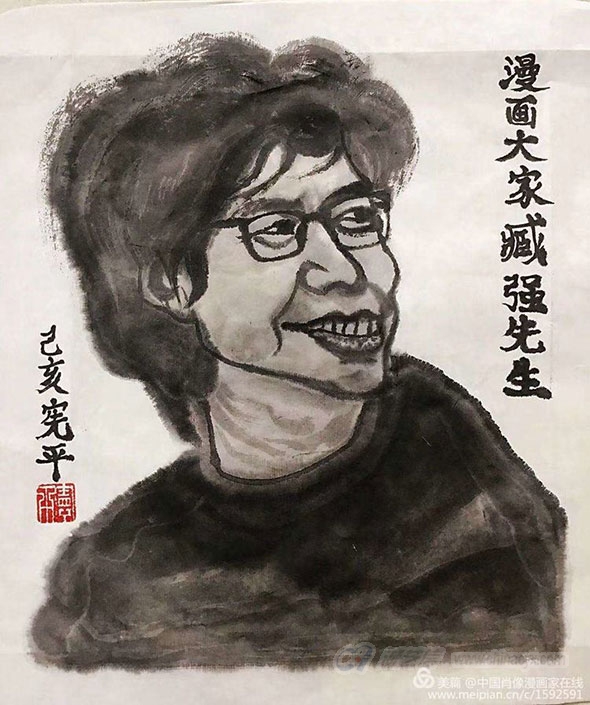 漫画大家臧强先生
己亥宪平
美篇 @中国肖像漫画家在线
www.meipian.cn/c/1592591